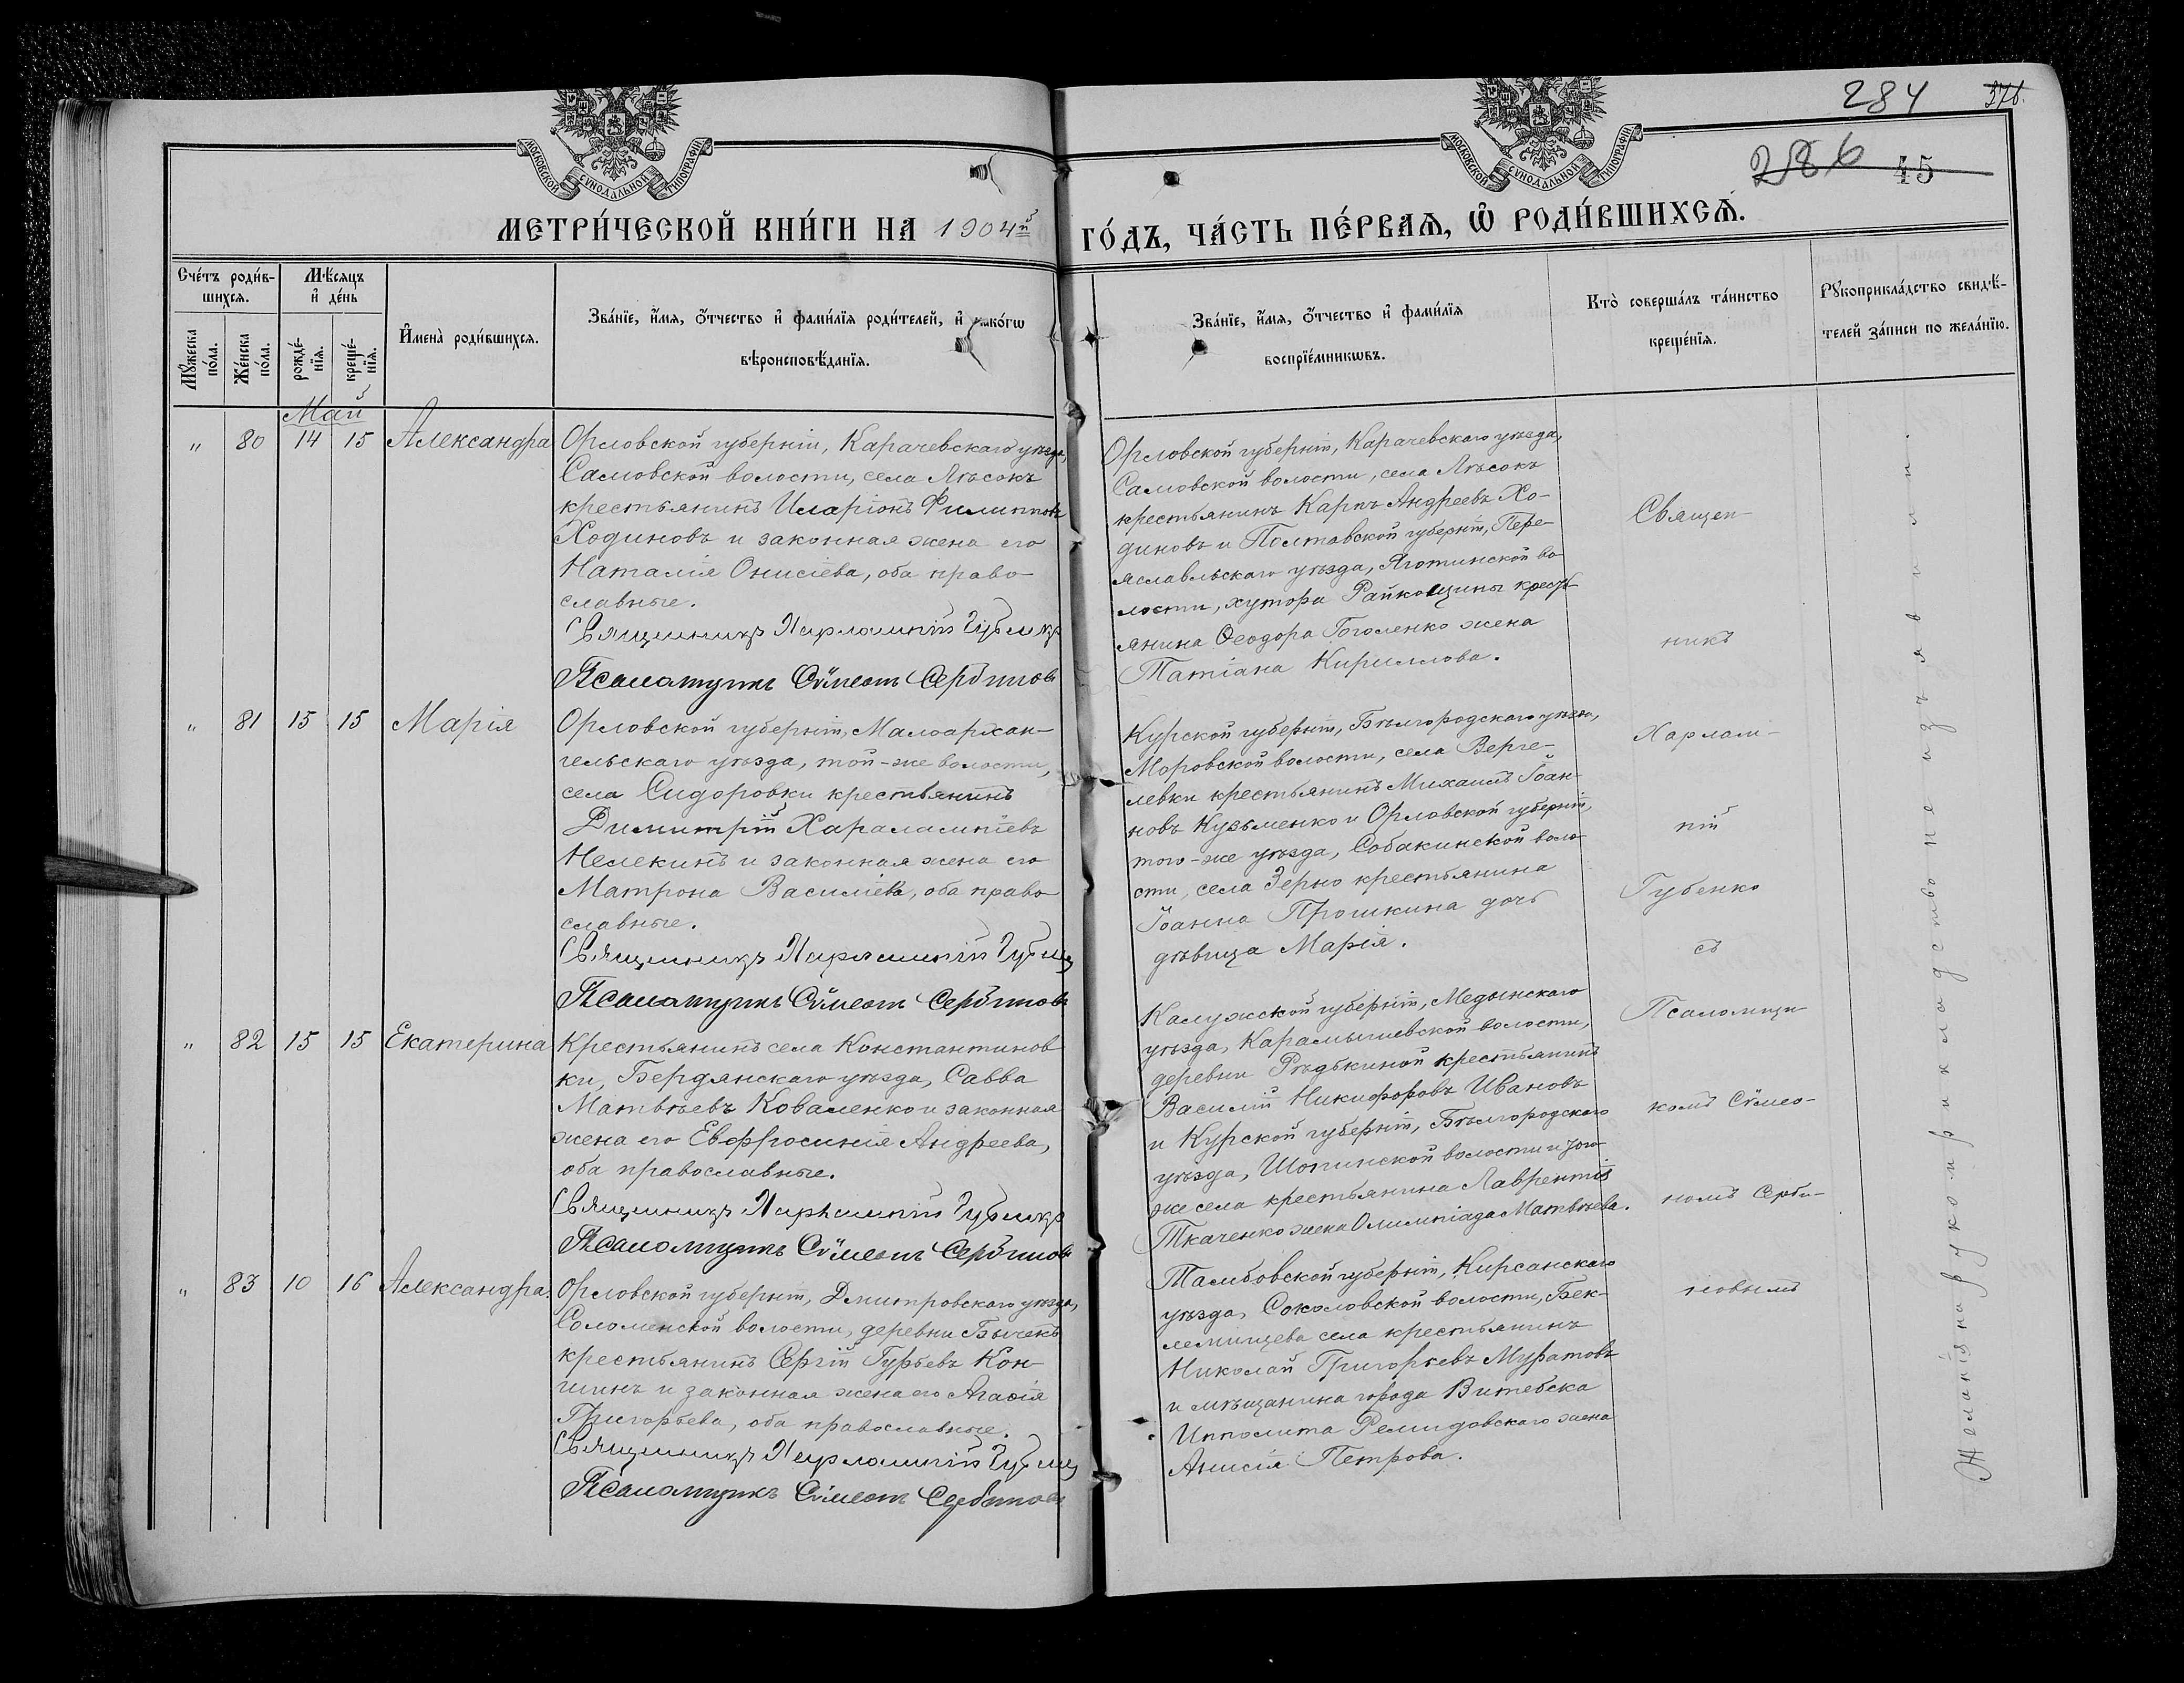 284 376.
286 45
МОСКОВСКОЙ СѴНОДАЛЬНОЙ ТИПОГРАФІИ
МОСКОВСКОЙ СѴНОДАЛЬНОЙ ТИПОГРАФІИ
МЕТРИ́ЧЕСКОЙ КНИ́ГИ НА 1904й ГО́ДЪ, ЧА́СТЬ ПЕ́РВАѦ, Ѡ҆ РОДИ́ВШИХСѦ.
Сче́тъ роди́в-
шихсѧ.
Мꙋ́жеска по́ла.
Же́нска по́ла.
Мѣ́сѧцъ
и҆ де́нь
рожде́-
нїѧ.
креще́-
нїѧ.
И҆мена̀ роди́вшихсѧ.
Зва́нїе, и҆́мѧ, ѻ҆́тчество и҆ фами́лїѧ роди́телей, и҆ како́гѡ
вѣроисповѣ́данїѧ.
Зва́нїе, и҆́мѧ, ѻ҆́тчество и҆ фами́лїѧ
воспрїе́мникѡвъ.
Кто̀ соверша́лъ та́инство
креще́нїѧ.
Рꙋкоприкла́дство свидѣ́-
телей за́писи по жела́нїю.
Май
" 80 14 15 Александра
Орловской губерніи, Карачевскаго уѣзда,
Самовской волости, села Лѣсокъ
крестьянинъ Иларіонъ Филипповъ
Ходиновъ и законная жена его
Наталія Онисіева, оба право-
славные.
Священникъ Харлампій Губенко
Псаломщикъ Сѷмеонъ Сербиновъ
Орловской губерніи, Карачевскаго уѣзда,
Самовской волости, села Лѣсокъ
крестьянинъ Карпъ Андреевъ Хо-
диновъ и Полтавской губерніи, Пере-
яславльскаго уѣзда, Яготинской во
лости, хутора Райковщины кресть-
янина Ѳеодора Гоголенко жена
Татіана Кириллова.
" 81 15 15 Марія
Орловской губерніи, Малоархан-
гельскаго уѣзда, той-же волости,
села Сидоровки крестьянинъ
Димитрій Харалампіевъ
Нелекинъ и законная жена его
Матрона Василіева, оба право
славные.
Священникъ Харлампій Губенко
Псаломщикъ Сѷмеонъ Сербиновъ
Курской губерніи, Бѣлгородскаго уѣзда,
Моровской волости, села Верге-
левки крестьянинъ Михаилъ Іоан-
новъ Кузьменко и Орловской губерніи,
того-же уѣзда, Собакинской воло
сти, села Зерно крестьянина
Іоанна Прошкина дочь
дѣвица Марія.
" 82 15 15 Екатерина
Крестьянинъ села Константинов
ки, Бердянскаго уѣзда, Савва
Матвѣевъ Коваленко и законная
жена его Евфросинія Андреева,
оба православные.
Священникъ Харлампій Губенко
Псаломщикъ Сѷмеонъ Сербиновъ
Калужской губерніи, Медынскаго
уѣзда, Карамышевской волости,
деревни Рѣдькиной крестьянинъ
Василій Никифоровъ Ивановъ
и Курской губерніи, Бѣлгородскаго
уѣзда, Шопинской волости и того
же села крестьянина Лаврентія
Ткаченко жена Олимпіада Матвѣева.
" 83 10 16 Александра.
Орловской губерніи, Дмитровскаго уѣзда,
Соломенской волости, деревни Бычекъ
крестьянинъ Сергій Гурьевъ Кон-
шинъ и законная жена его Агаѳія
Григорьева, оба православные.
Священникъ Харлампій Губенко
Псаломщикъ Сѷмеонъ Сербиновъ
Тамбовской губерніи, Кирсанскаго
уѣзда, Соколовской волости, Бек-
лемищева села крестьянинъ
Николай Григорьевъ Муратовъ
и мѣщанина города Витебска
Ипполита Ремидовскаго жена
Анисія Петрова.
Священ-
никъ
Харлам-
пій
Губенко
съ
Псаломщи-
комъ Сѷмео-
номъ Серби-
новымъ
Желанія на рукоприкладство не изъявили.